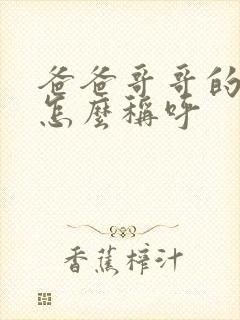 爸爸哥哥的
怎麼稱呼
香蕉榨汁